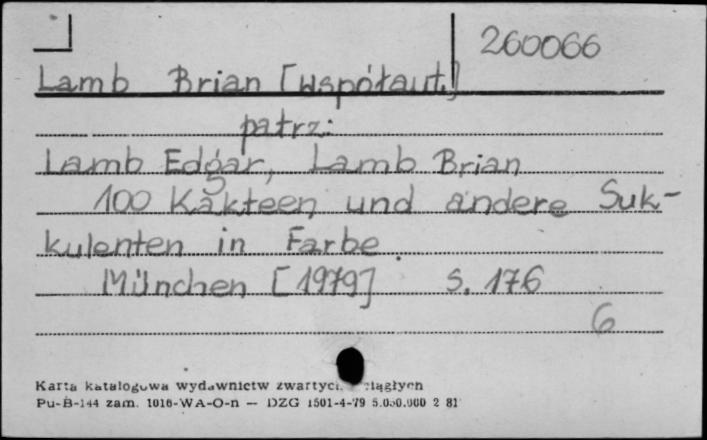 260066
Lamb Brian [współaut.]
patrz:
Lamb Edgar, Lamb Brian
100 Kakteen und andere Suk-
kulenten in Farbe.
München [1979] S. 176
6
Karta katalogowa wydawnictw
Pu-B-144 zam. 1016-WA-O-n — DZG 1501-4-79 5.000.000 2 81